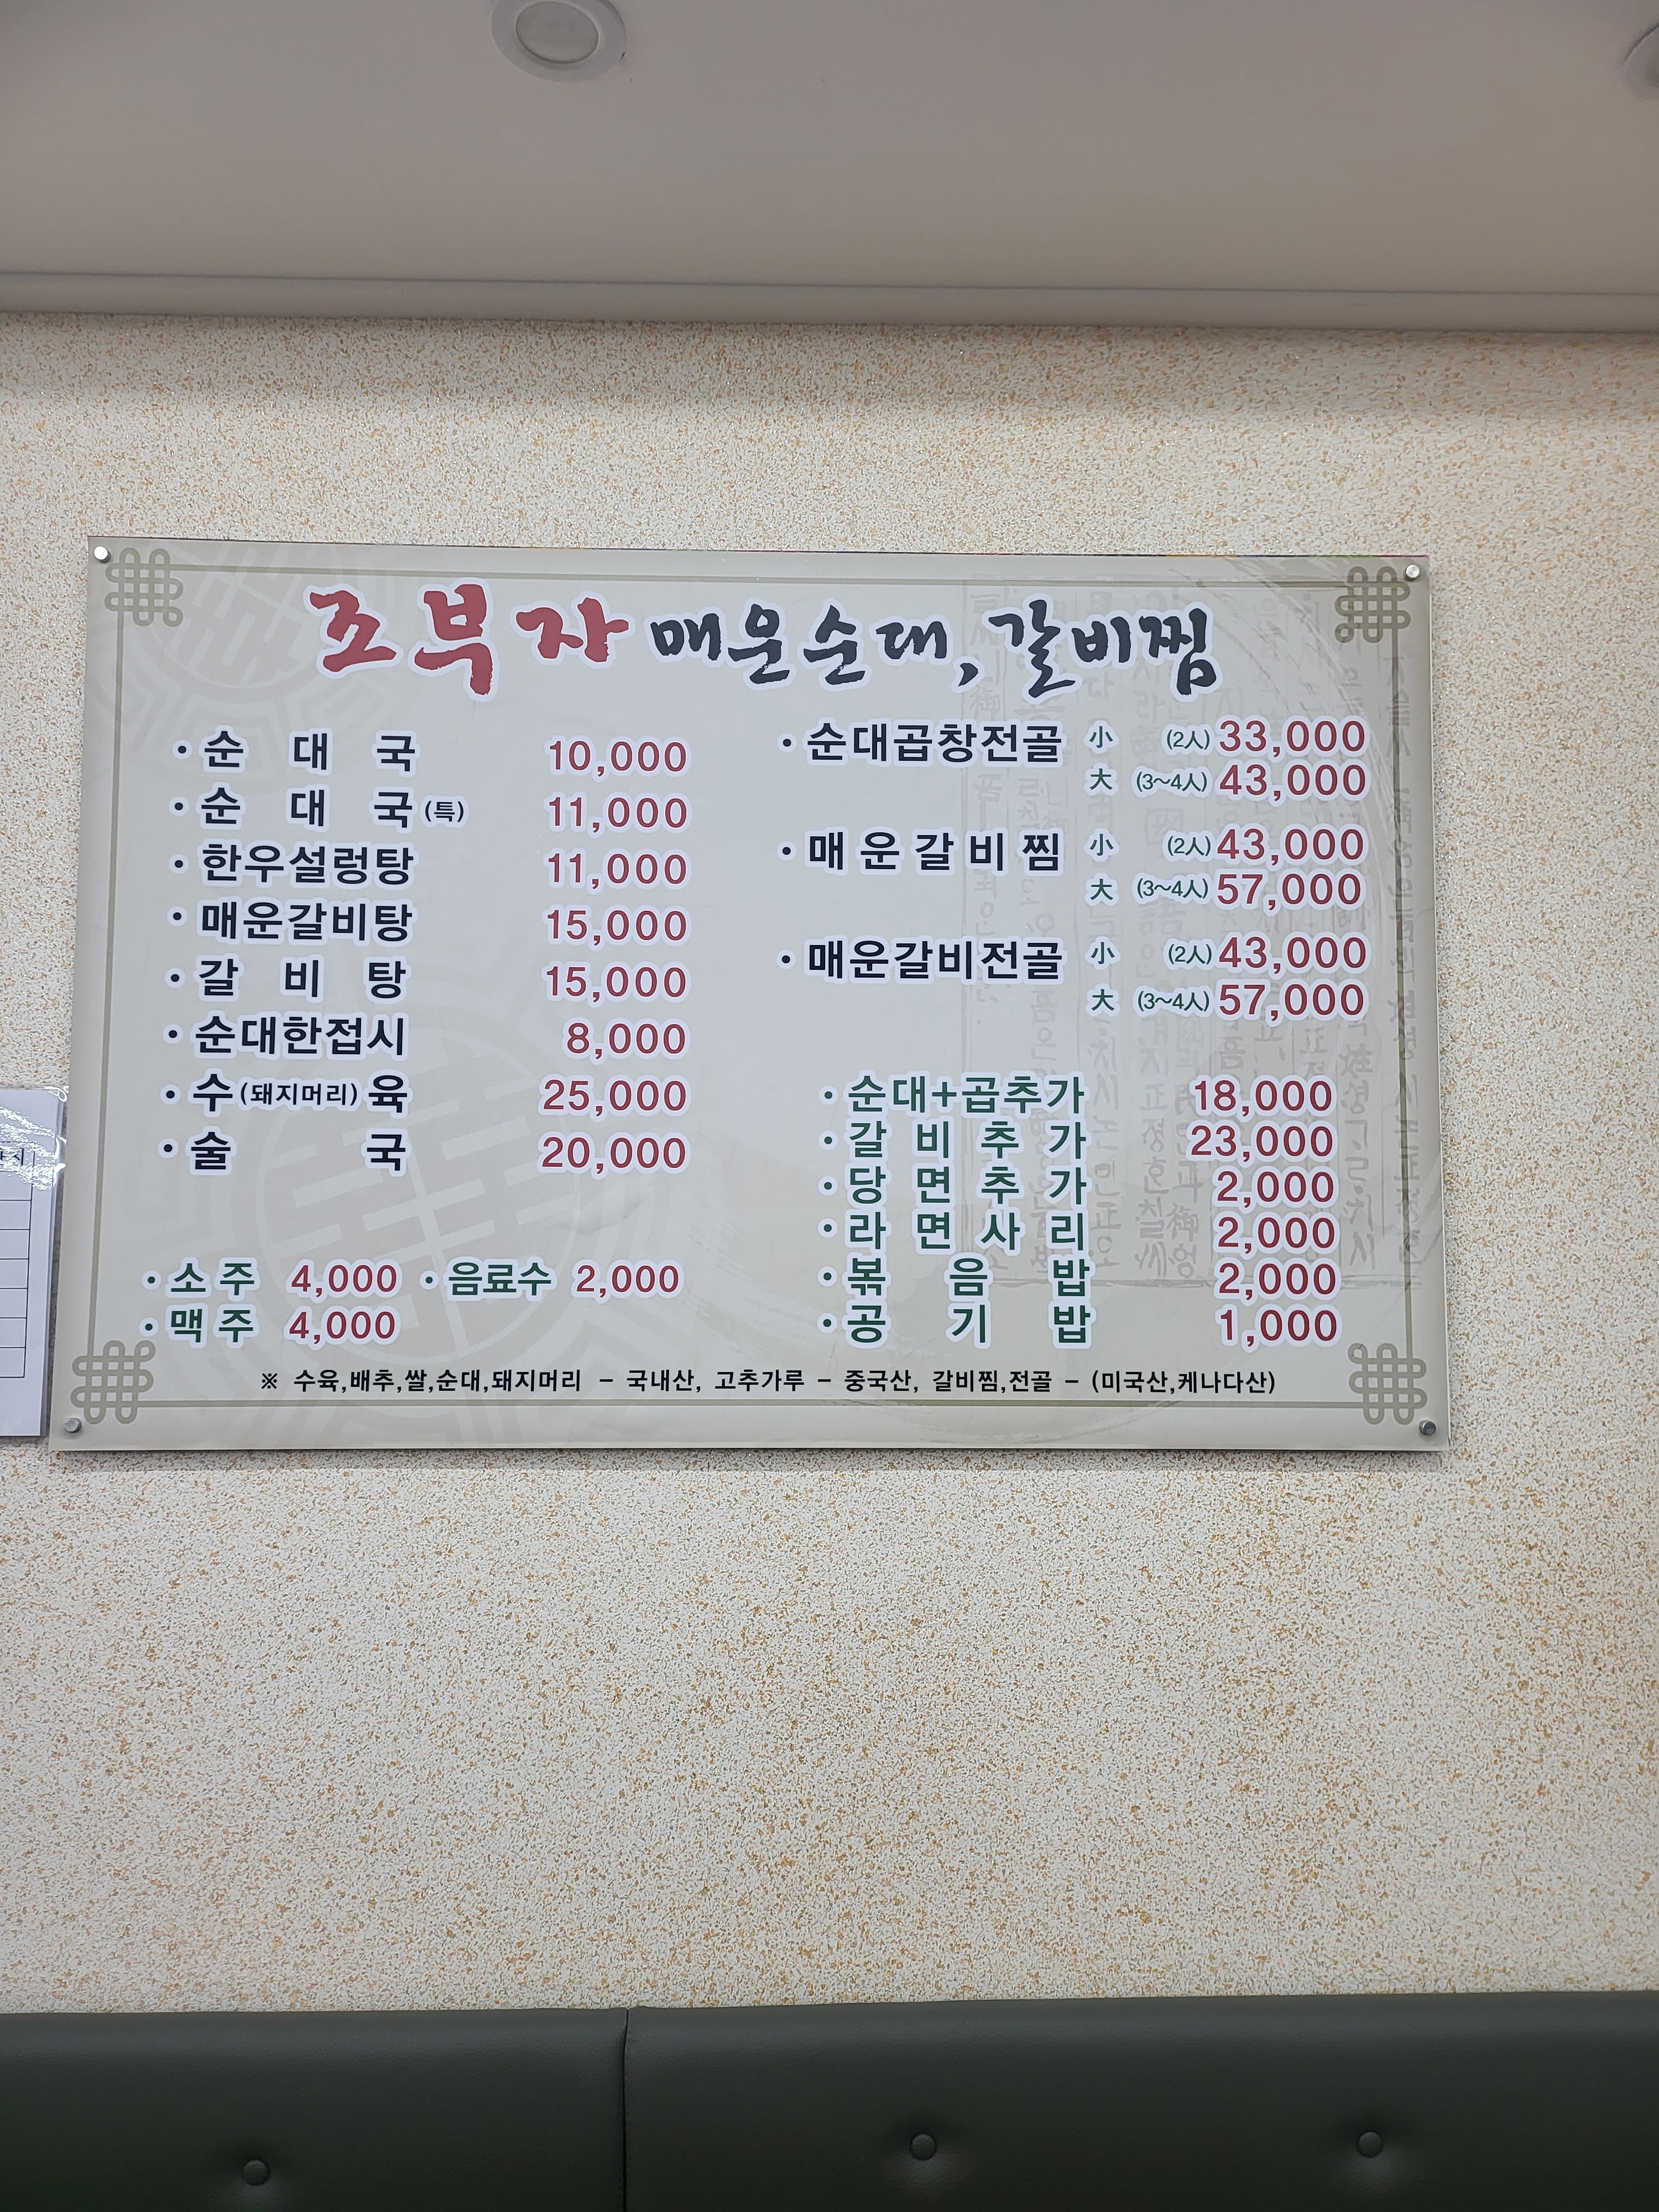 조부자 매운순대, 갈비찜
· 순 대 국 10,000
· 순 대 국 (특) 11,000
· 한우설렁탕 11,000
· 매운갈비탕 15,000
· 갈 비 탕 15,000
· 순대한접시 8,000
· 수(돼지머리)육 25,000
· 술 국 20,000
· 소 주 4,000 · 음료수 2,000
· 맥 주 4,000
· 순대곱창전골 小 (2人) 33,000
大 (3~4人) 43,000
· 매 운 갈 비 찜 小 (2人) 43,000
大 (3~4人) 57,000
· 매운갈비전골 小 (2人) 43,000
大 (3~4人) 57,000
· 순대+곱추가 18,000
· 갈 비 추 가 23,000
· 당 면 추 가 2,000
· 라 면 사 리 2,000
· 볶 음 밥 2,000
· 공 기 밥 1,000
※ 수육,배추,쌀,순대,돼지머리 - 국내산, 고추가루 - 중국산, 갈비찜,전골 - (미국산,케나다산)